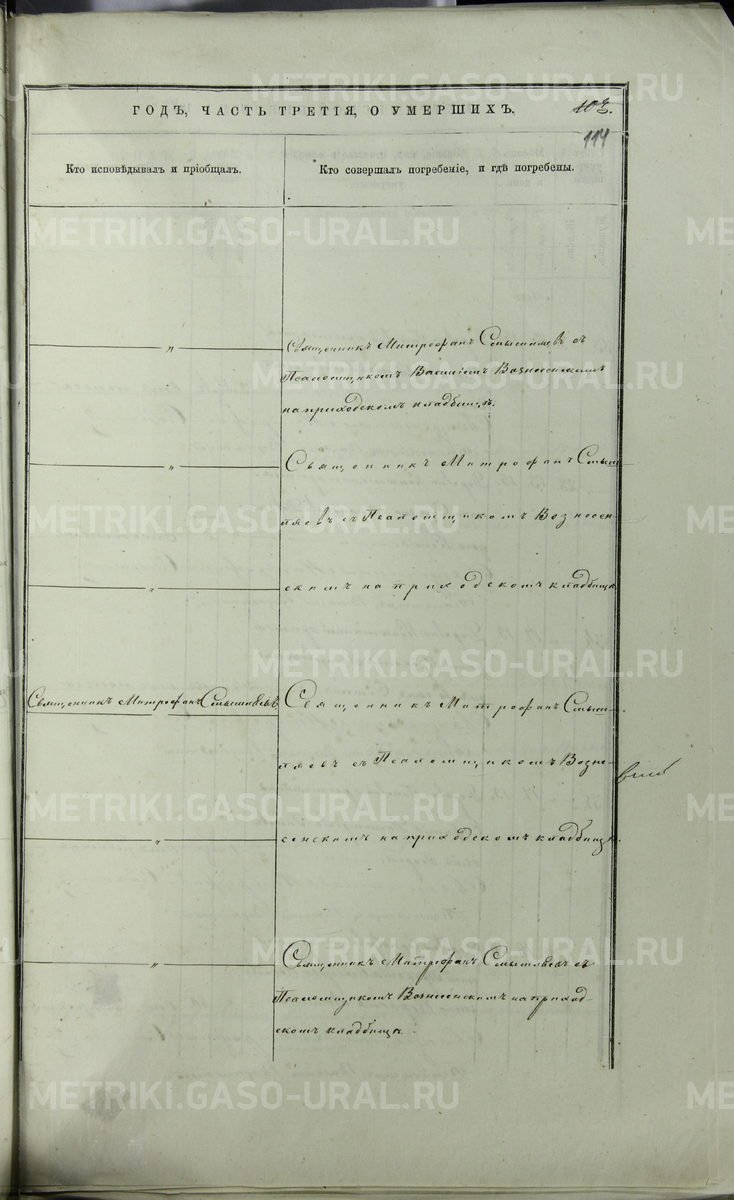 ГОДЪ, ЧАСТЬ ТРЕТІЯ, О УМЕРШИХЪ.
114
Кто исповѣдывалъ и пріобщалъ.
Кто совершалъ погребеніе, и гдѣ погребены.
„ Священникъ Митрофанъ съ
Псаломщикомъ Василіемъ Вознесенскимъ
на приходскомъ кладбищѣ.
„ Священникъ Митрофанъ Смыш
ляевъ съ Псаломщикомъ Вознесен
„ скимъ на приходскомъ кладбищѣ
Священникъ Митрофанъ Смышляевъ
Священникъ Митрофанъ Смыш-
ляевъ съ Псаломщикомъ Возне-
„ сенскимъ на приходскомъ кладбищѣ.
„ Священникъ Митрофанъ Смышляевъ съ
Псаломщикомъ Вознесенскимъ на приход-
скомъ кладбищѣ.
METRIKI.GASO-URAL.RU